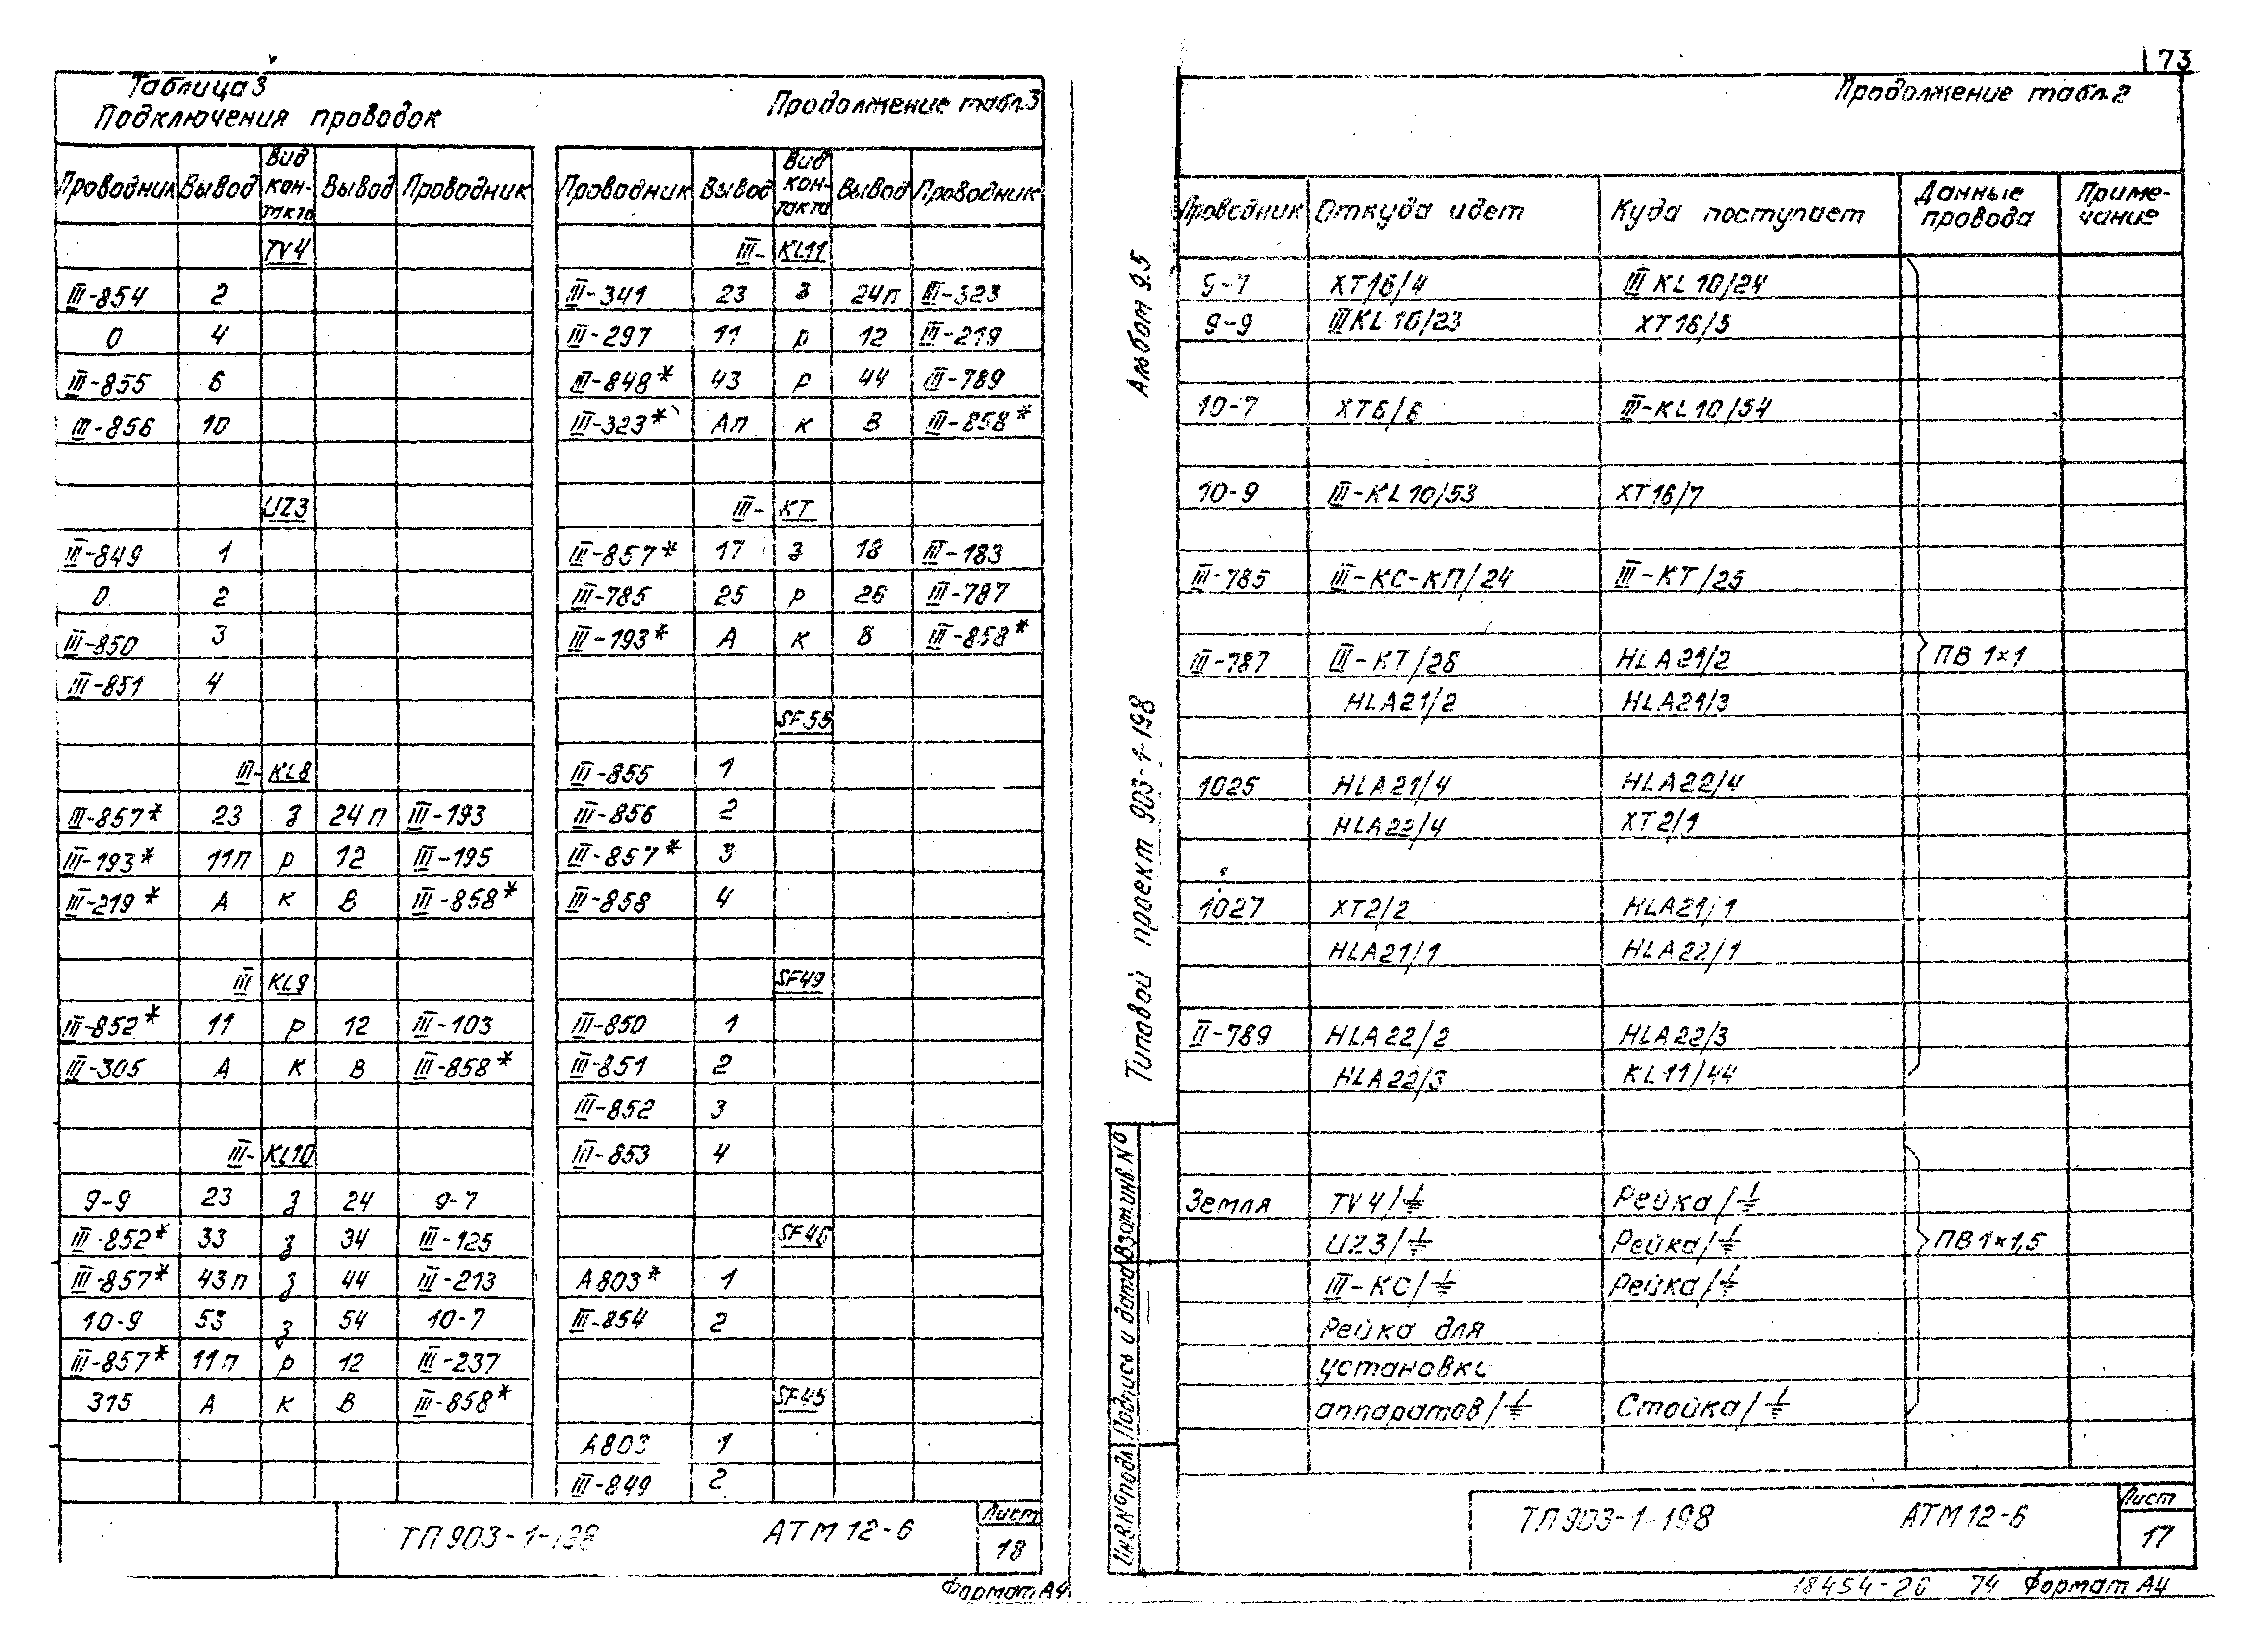 Таблица 3
Подключения проводок
Продолжение табл.3
Проводник Вывод Вид контакта Вывод Проводник
TV4
III-854 2
0 4
III-855 6
III-856 10
UZ3
III-849 1
0 2
III-850 3
III-851 4
III-KL8
III-857* 23 з 24п III-193
III-193* 11п р 12 III-195
III-219* А к В III-858*
III KL9
III-852* 11 р 12 III-103
III-305 А к В III-858*
III-KL10
9-9 23 з 24 9-7
III-852* 33 з 34 III-125
III-857* 43п з 44 III-213
10-9 53 з 54 10-7
III-857* 11п р 12 III-237
315 А к В III-858*
Проводник Вывод Вид контакта Вывод Проводник
III-KL11
III-341 23 з 24п III-323
III-297 11 р 12 III-219
III-848* 43 р 44 III-789
III-323* Ап к В III-858*
III-КТ
III-857* 17 з 18 III-183
III-785 25 р 26 III-787
III-193* А к В III-858*
SF55
III-855 1
III-856 2
III-857* 3
III-858 4
SF49
III-850 1
III-851 2
III-852 3
III-853 4
SF46
А803* 1
III-854 2
SF45
А803 1
III-849 2
ТП903-1-198 АТМ12-6 Лист
18
Формат А4
173
Продолжение табл.2
Альбом 9.5
Типовой проект 903-1-198
Проводник Откуда идет Куда поступает Данные провода Приме-
чание
9-7 ХТ16/4 III KL10/24
9-9 III KL10/23 ХТ16/5
10-7 ХТ6/6 III-KL10/54
10-9 III-KL10/53 ХТ16/7
III-785 III-КС-КП/24 III-КТ/25
III-787 III-КТ/26 HLA21/2 ПВ 1×1
HLA21/2 HLA21/3
1025 HLA21/4 HLA22/4
HLA22/4 ХТ2/1
1027 ХТ2/2 HLA21/1
HLA21/1 HLA22/1
II-789 HLA22/2 HLA22/3
HLA22/3 KL11/44
Земля TV4/⏚ Рейка/⏚
UZ3/⏚ Рейка/⏚ ПВ1×1,5
III-КС/⏚ Рейка/⏚
Рейка для
установки
аппаратов/⏚ Стойка/⏚
Инв.№подл. Подпись и дата Взам.инв.№
ТП903-1-198 АТМ12-6 Лист
17
18454-26 74 Формат А4